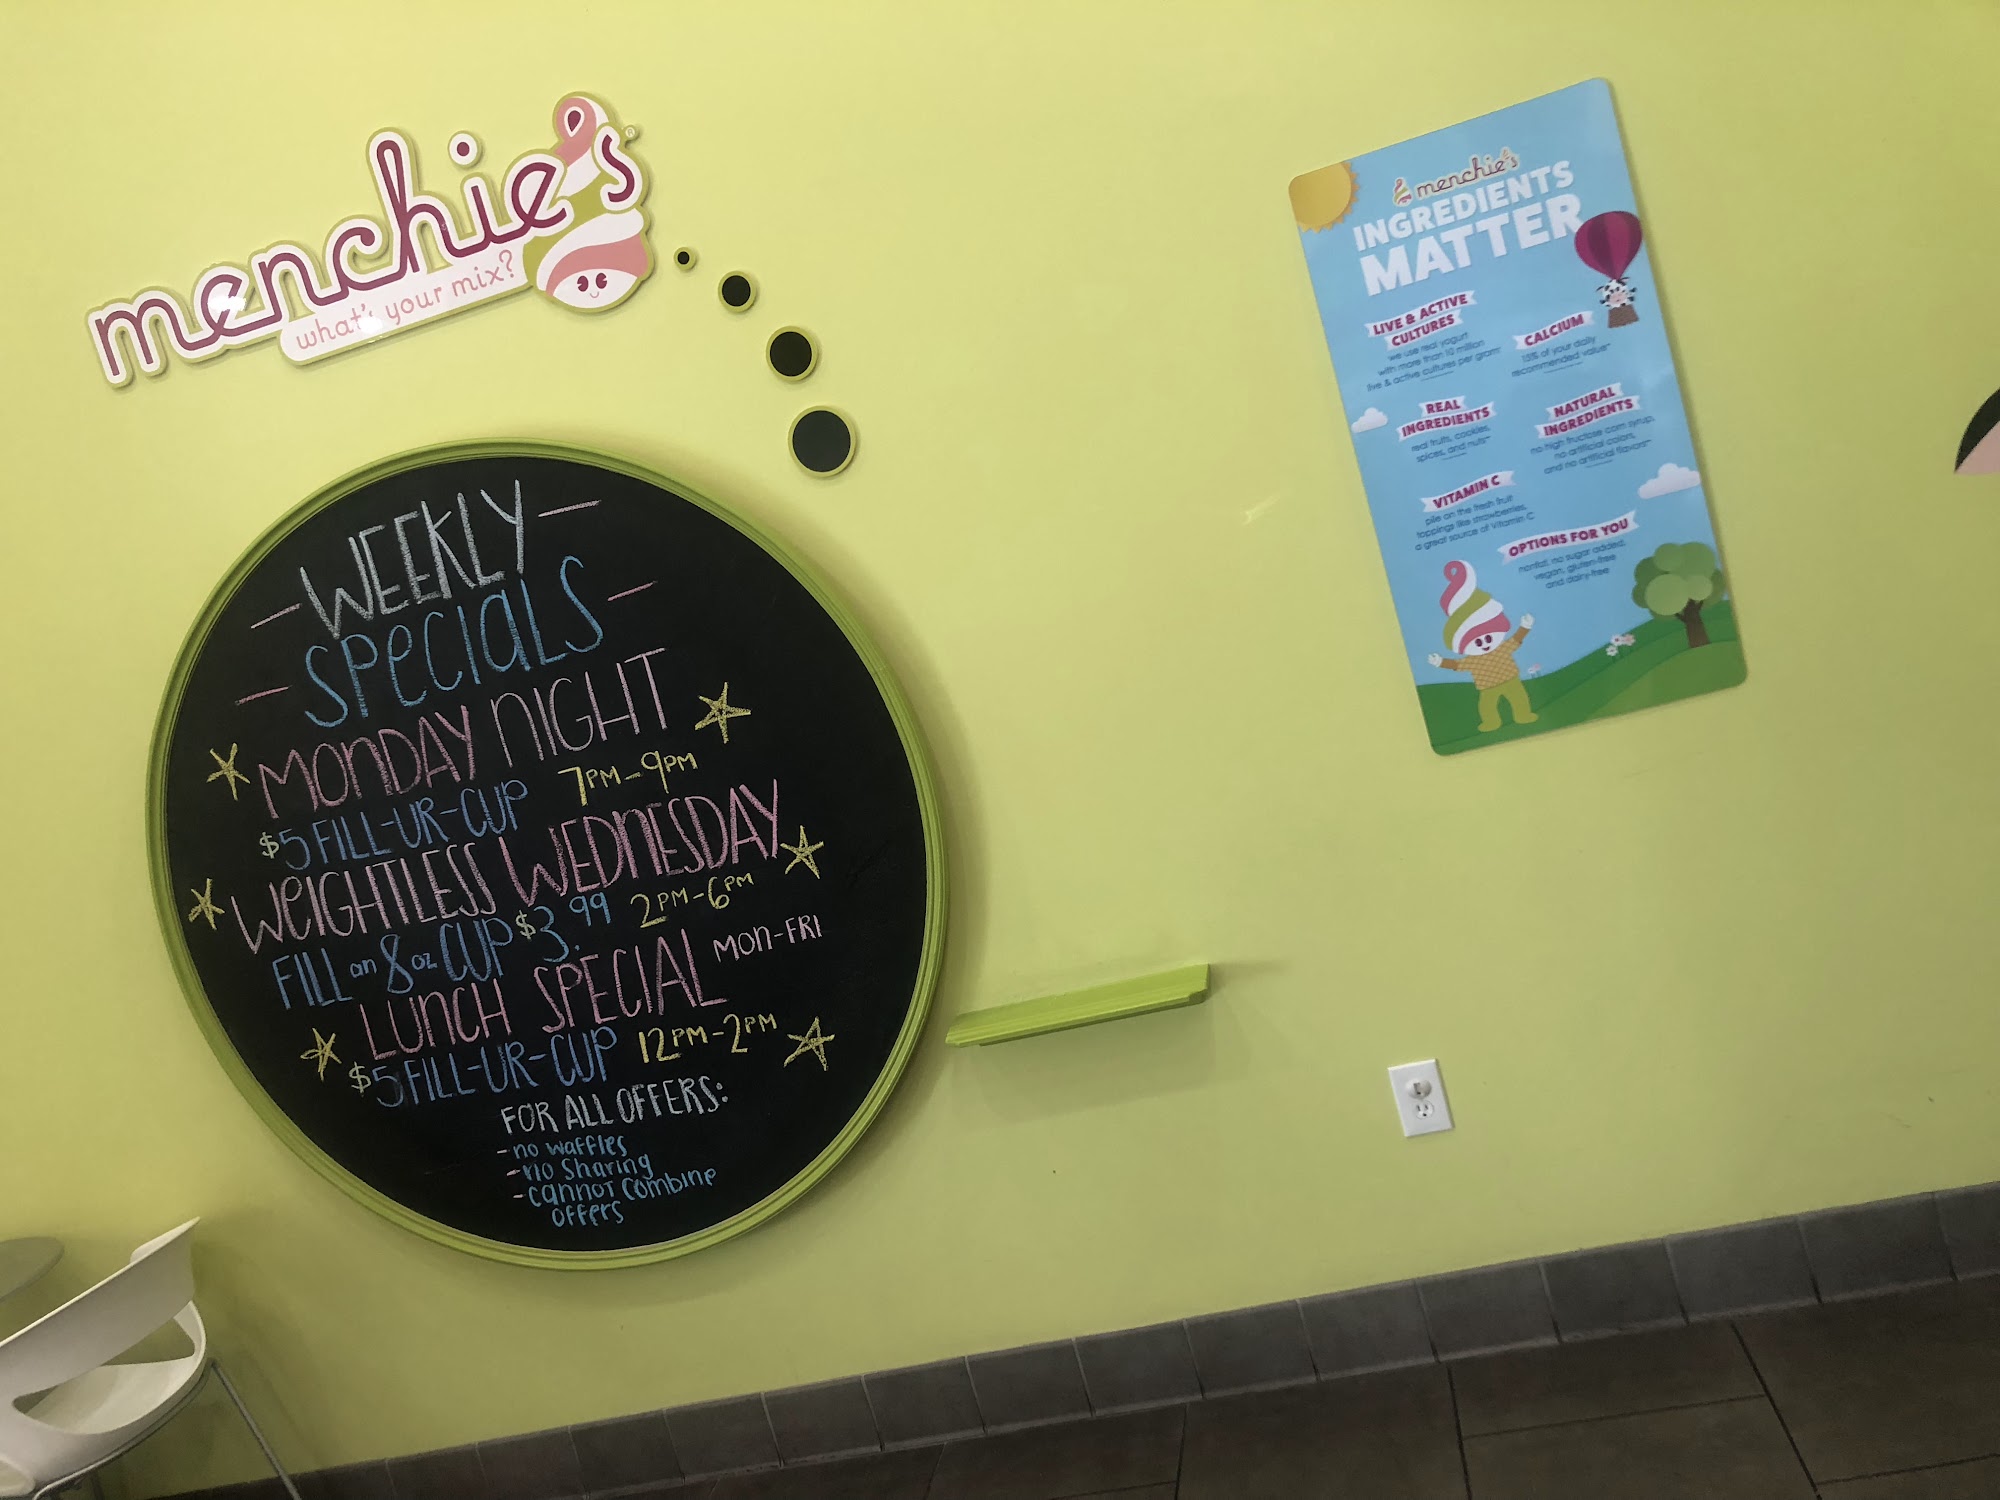 menchie's®
what's your mix?
WEEKLY
SPECIALS
MONDAY NIGHT
$5 FILL-UR-CUP 7PM-9PM
WEIGHTLESS WEDNESDAY
FILL an 8oz CUP $3.99 2PM-6PM
LUNCH SPECIAL MON-FRI
$5 FILL-UR-CUP 12PM-2PM
FOR ALL OFFERS:
-no waffles
-no sharing
-cannot combine
offers
menchie's
INGREDIENTS
MATTER
LIVE & ACTIVE
CULTURES
we use real yogurt
with more than 10 million
live & active cultures per gram*
CALCIUM
15% of your daily
recommended value**
REAL
INGREDIENTS
real fruits, cookies,
spices, and nuts**
NATURAL
INGREDIENTS
no high fructose corn syrup,
no artificial colors,
and no artificial flavors**
VITAMIN C
pile on the fresh fruit
toppings like strawberries,
a great source of Vitamin C
OPTIONS FOR YOU
nonfat, no sugar added,
vegan, gluten-free
and dairy-free